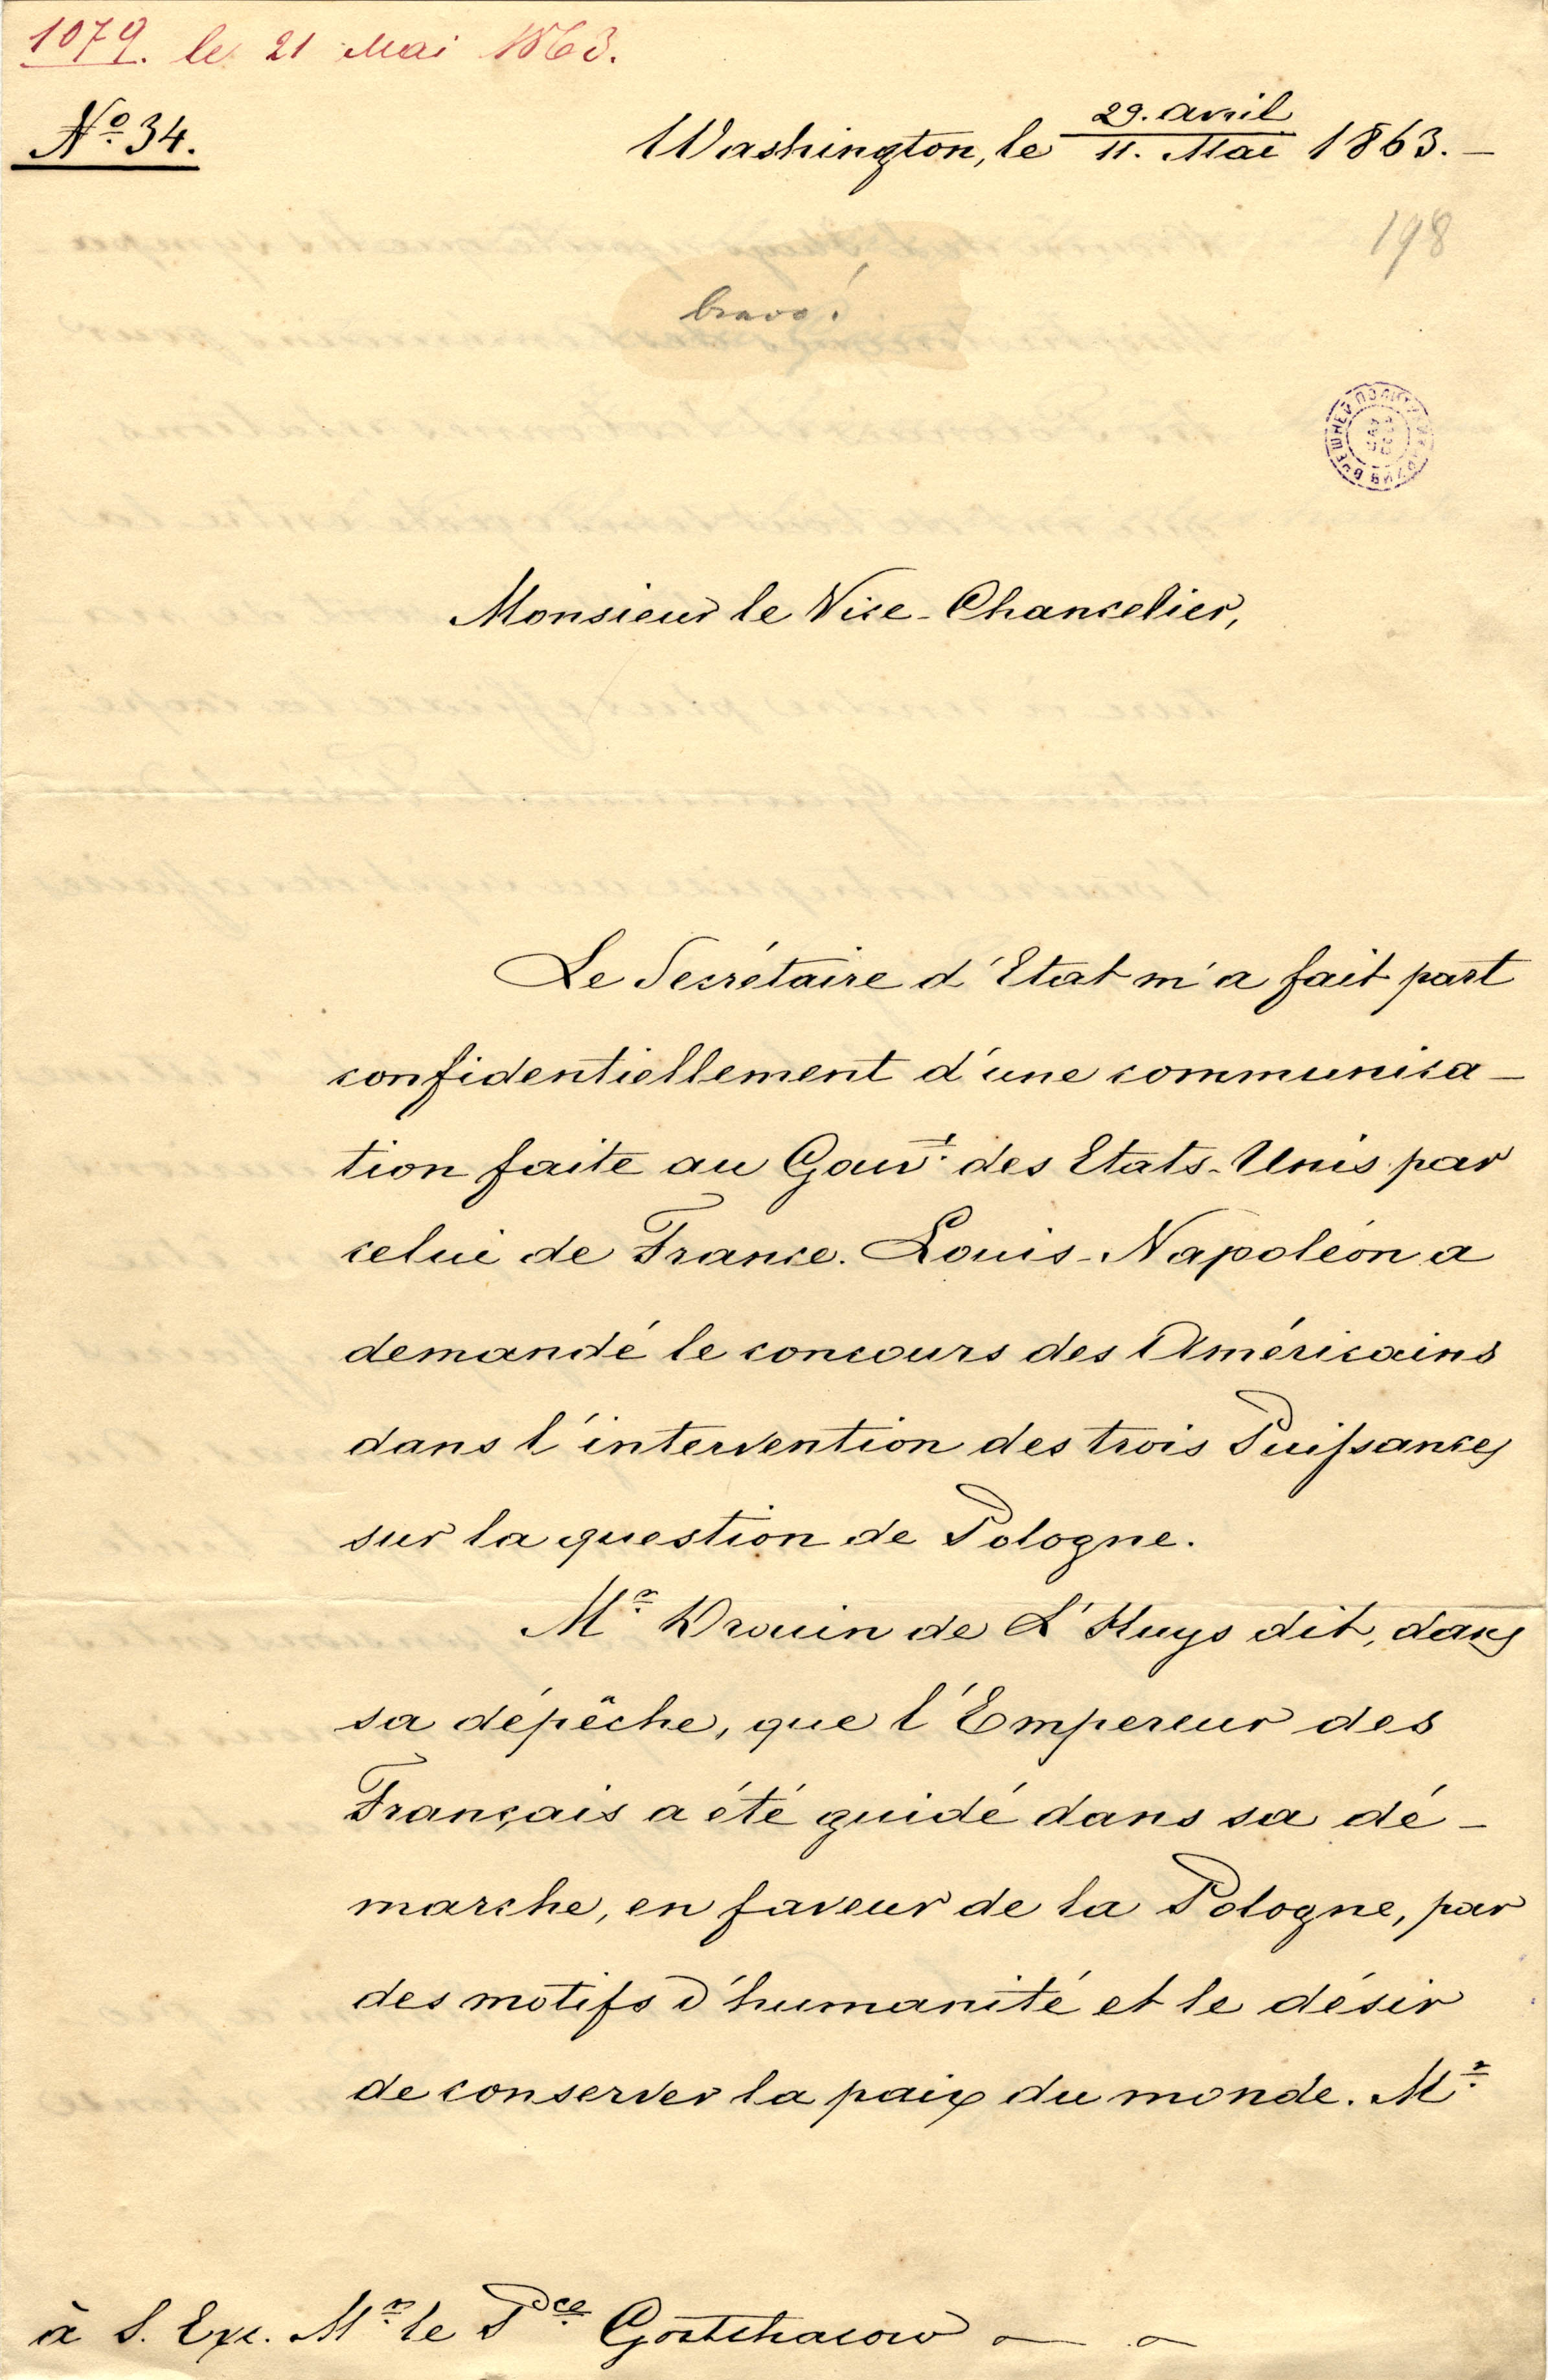 1079. le 21 Mai 1863.
Nº 34.
Washington, le 29. avril / 11. Mai 1863. —
198
bravo!
Monsieur le Vice-Chancelier,
Le Secrétaire d'Etat m'a fait part
confidentiellement d'une communica-
tion faite au Gouvt. des Etats-Unis par
celui de France. Louis-Napoléon a
demandé le concours des Américains
dans l'intervention des trois Puissances
sur la question de Pologne.
Mr. Drouin de L'Huys dit, dans
sa dépêche, que l'Empereur des
Français a été guidé dans sa dé-
marche, en faveur de la Pologne, par
des motifs d'humanité et le désir
de conserver la paix du monde. Mr.
à S. Exc. Mr. le Pce. Gortchacow